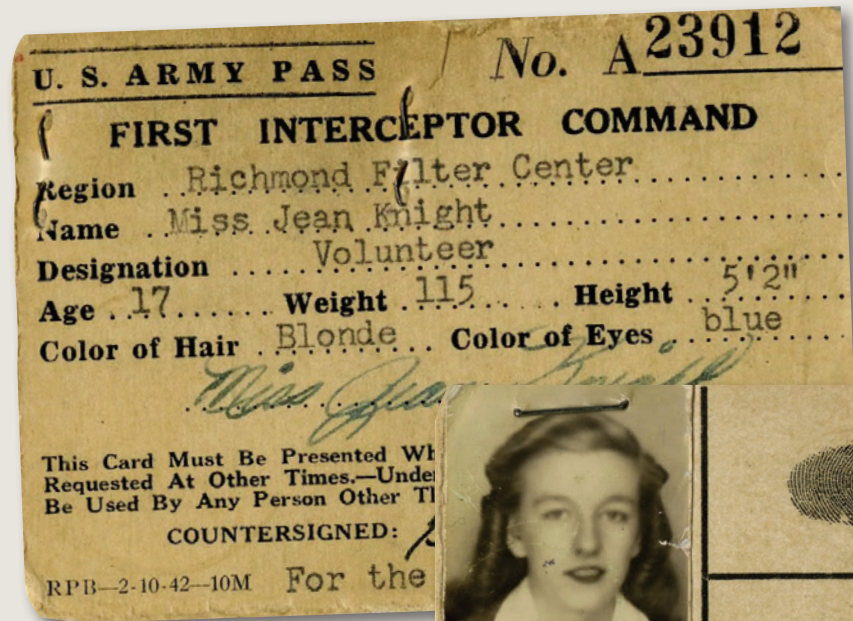 U. S. ARMY PASS
No. A 23912
FIRST INTERCEPTOR COMMAND
Region Richmond Filter Center
Name Miss Jean Knight
Designation Volunteer
Age 17 Weight 115 Height 5'2"
Color of Hair Blonde Color of Eyes blue
Miss Jean Knight
This Card Must Be Presented Wh
Requested At Other Times.—Unde
Be Used By Any Person Other Th
COUNTERSIGNED:
RPB—2-10-42—10M For the